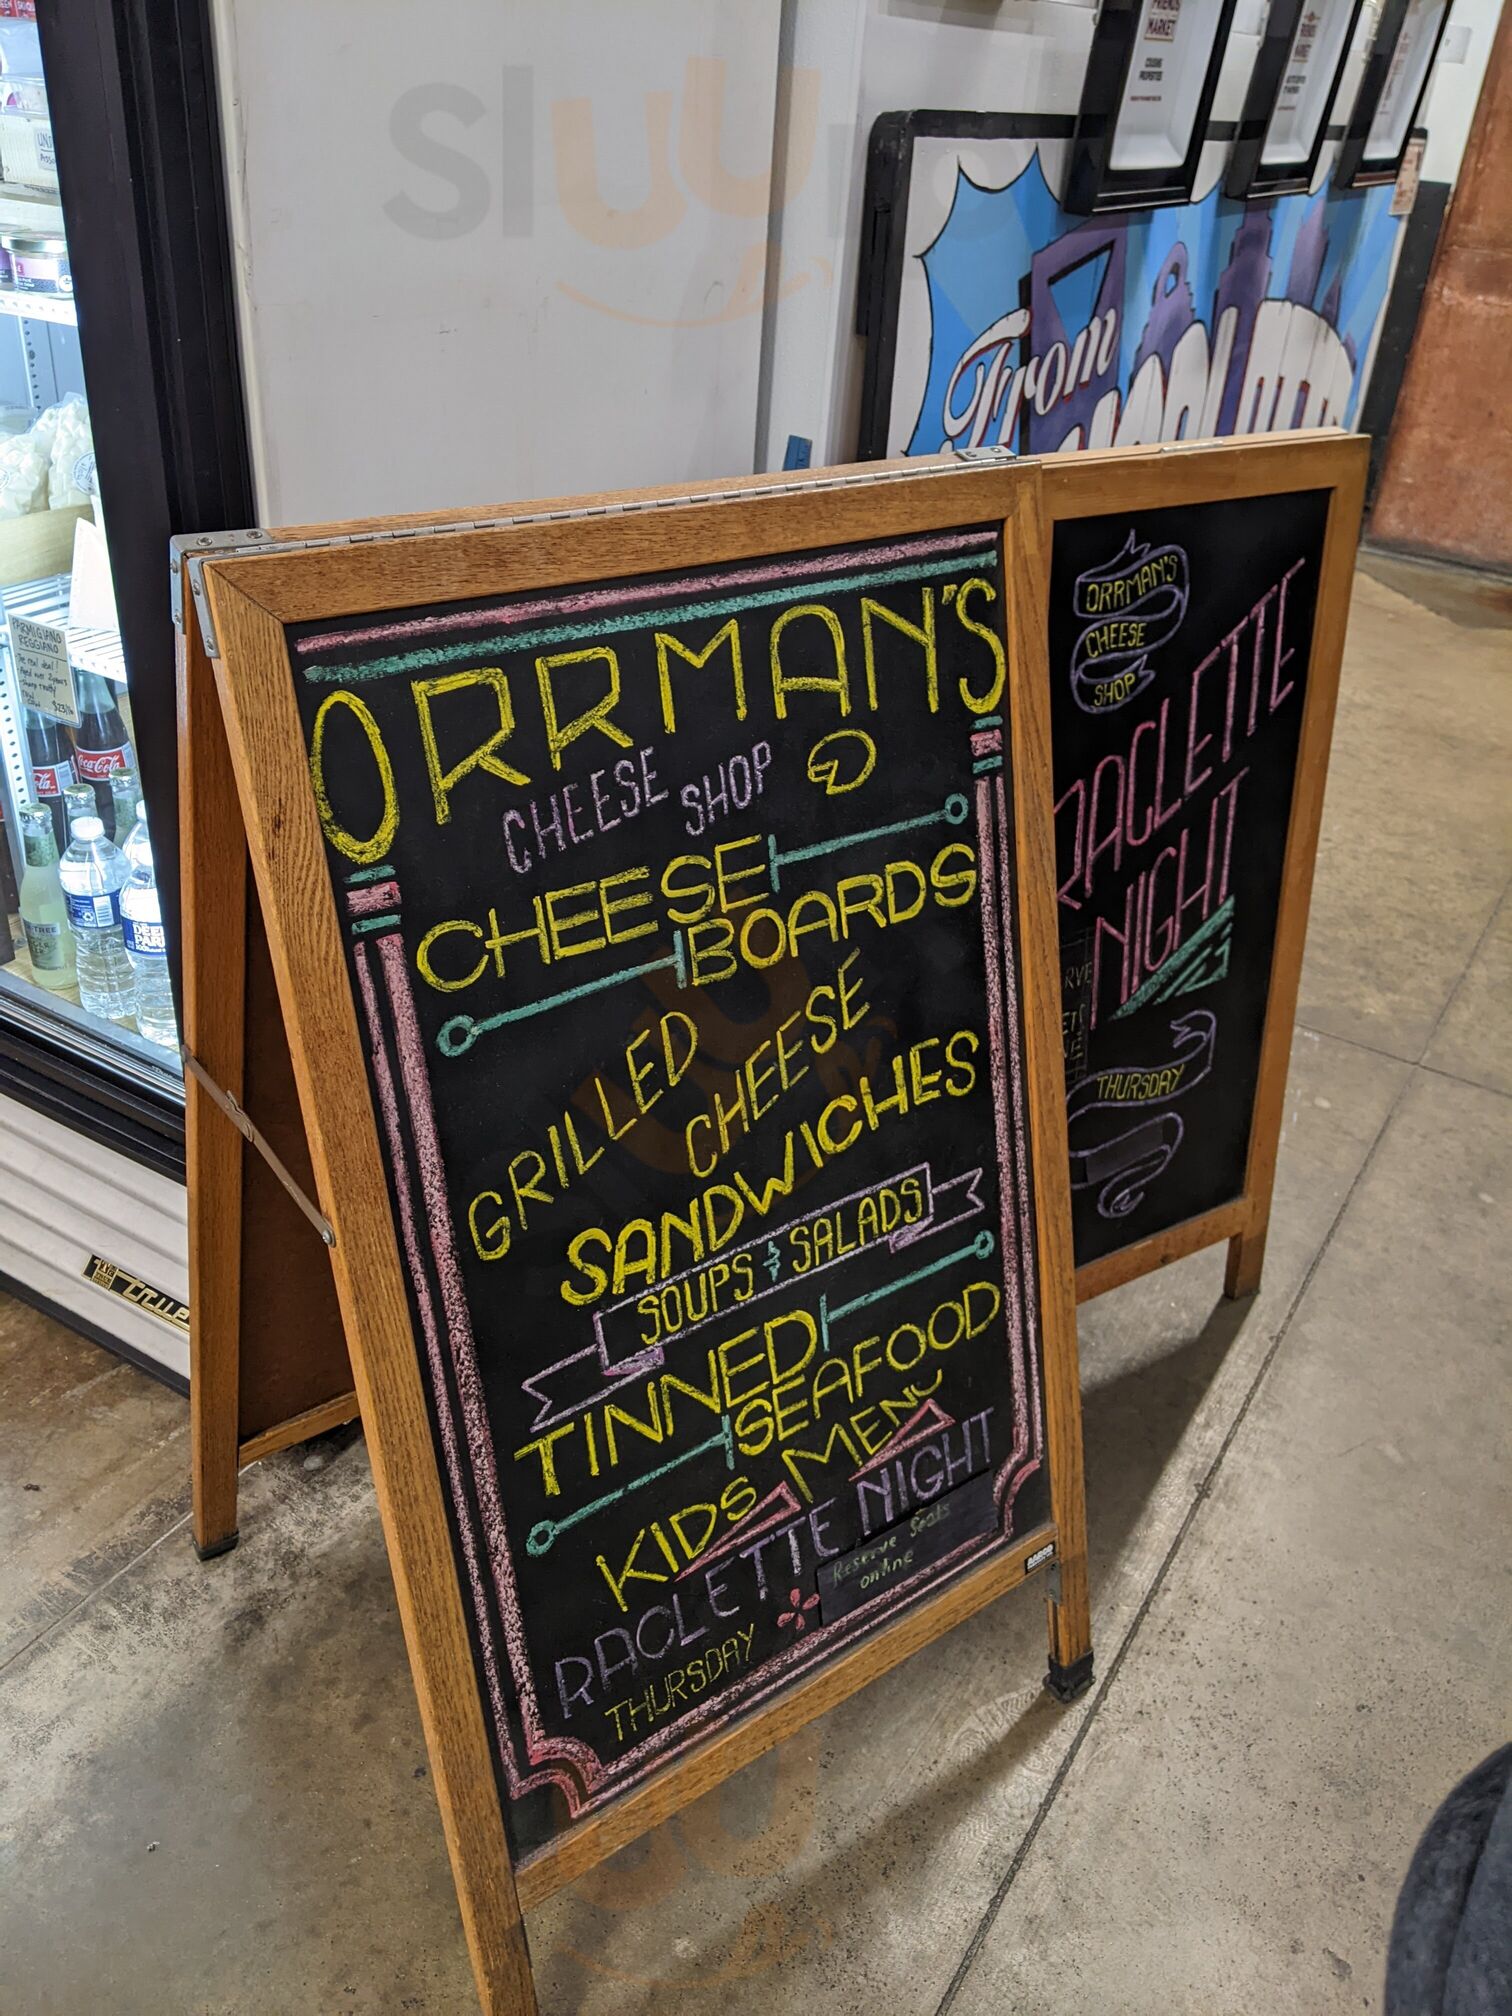 ORRMAN'S
CHEESE SHOP
CHEESE
BOARDS
GRILLED
CHEESE
SANDWICHES
SOUPS & SALADS
TINNED
SEAFOOD
KIDS MENU
RACLETTE NIGHT
THURSDAY
Reserve Seats
online
ORRMAN'S
CHEESE
SHOP
RACLETTE
NIGHT
THURSDAY
From
MARKET
PARMIGIANO
REGGIANO
The real deal!
Coca-Cola
DEER
PARK
True